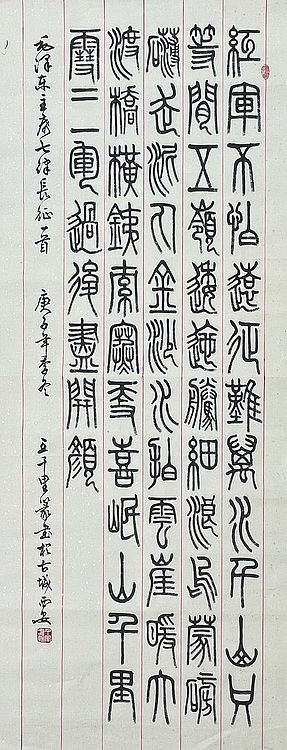 紅軍不怕遠征難萬水千山只
等閒五嶺逶迤騰細浪烏蒙磅
礴走泥丸金沙水拍雲崖暖大
渡橋橫銕索寒更喜岷山千里
雪三軍過後盡開顏
毛泽东主席七律長征一首 庚子年季冬 王千里篆書於古城西安